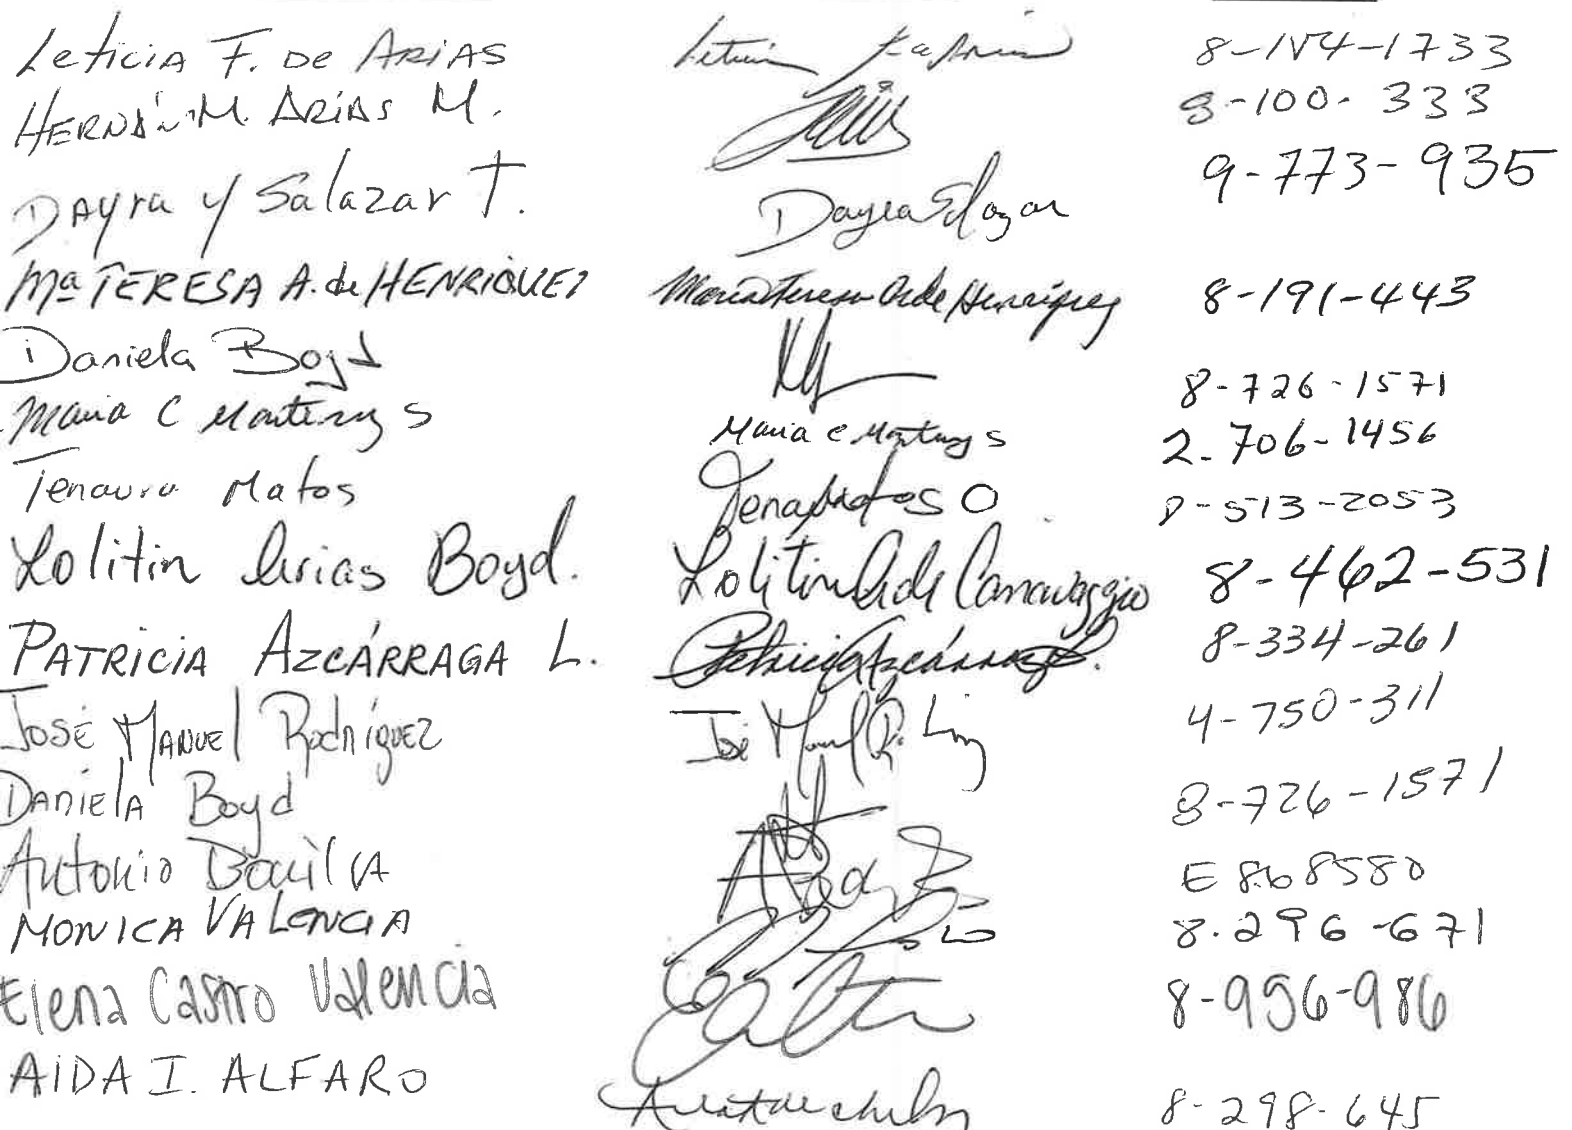 Leticia F. De Arias 8-154-1733
Hernán M. Arias M. 8-100-333
Dayra Y Salazar T. Dayra Salazar 9-773-935
Mª Teresa A. de Henríquez María Teresa A de Henríquez 8-191-443
Daniela Boyd 8-726-1571
Maria C Montenegro S Maria C Montenegro S 2-706-1456
Tenaura Matos 8-513-2053
Lolitin Arias Boyd. Lolitin A de Cannavaggio 8-462-531
Patricia Azcárraga L. Patricia Azcárraga L. 8-334-261
José Manuel Rodríguez José Manuel R. 4-750-311
Daniela Boyd 8-726-1571
Antonio E 868580
Monica Valencia 8-296-671
Elena Castro Valencia 8-956-986
Aida I. Alfaro 8-298-645